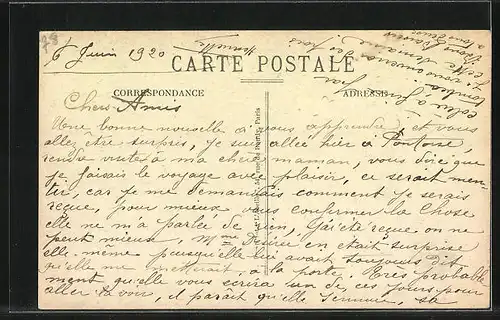 78
6 Juin 1920
CARTE POSTALE
CORRESPONDANCE
ADRESSE
Chers Amis
Une bonne nouvelle à vous apprendre, et vous
allez être surpris, je suis allée hier à Pontoise,
rendre visite à ma chère maman, vous dire que
je faisais le voyage avec plaisir, ce serait men-
tir, car je me demandais comment je serais
reçue, pour mieux vous confirmer la chose
elle ne m'a parlée de rien, j'ai été reçue on ne
peut mieux, Mme Desirée en était surprise
elle-même puisqu'elle lui avait toujours dit
qu'elle me mettrait à la porte. Très probable
ment qu'elle vous écrira un de ces jours pour
aller la voir, il paraît qu'elle s'ennuie, sa